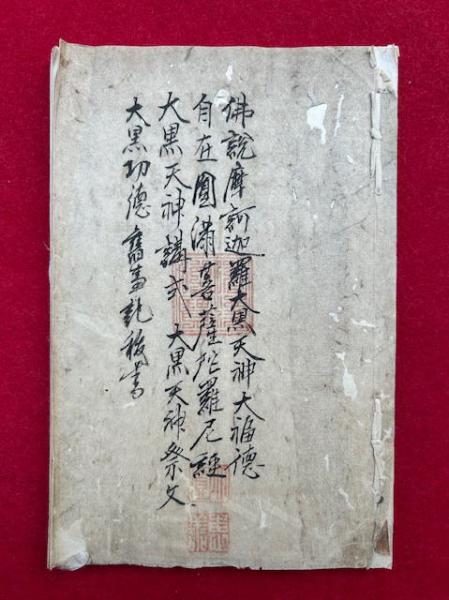 佛說摩訶迦羅大黒天神大福德
自在圓滿菩薩陀羅尼經
大黒天神講式 大黒天神祭文
大黒功德 舊事記抜書